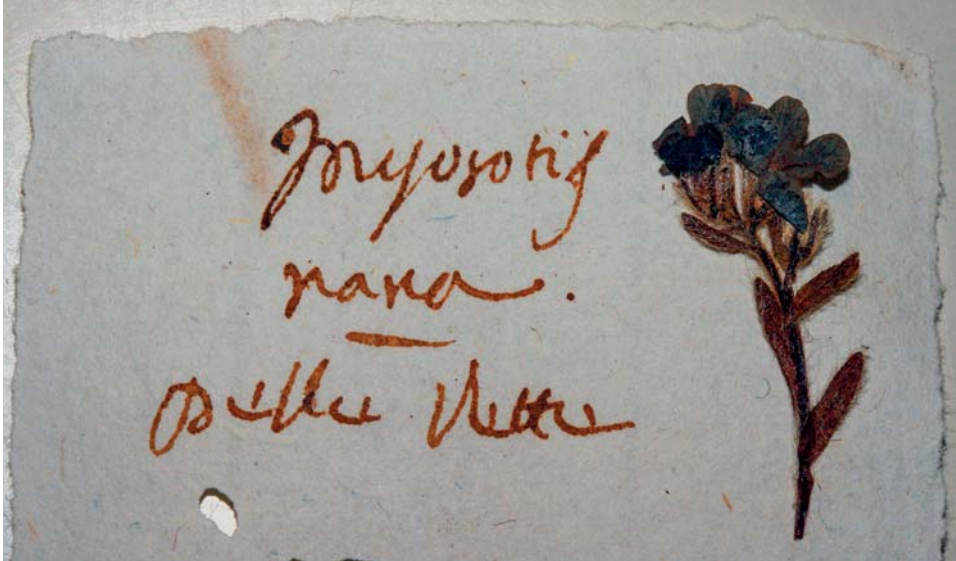 Myosotis
nana.
Delle Vette